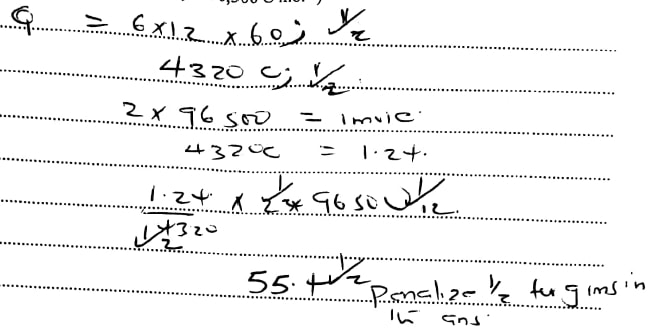 Q = 6 x 12 x 60; 1/2
4320 C; 1/2
2 x 96500 = 1mole
4320C = 1.24.
1.24 x 2 x 96500 1/2
4320
1/2
55.4 1/2 Penalize 1/2 for gms in
ans.